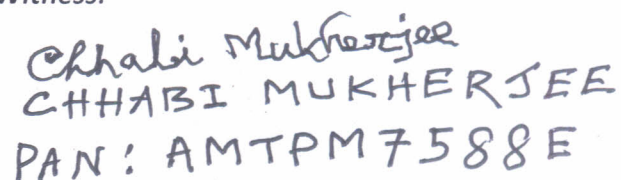 Witness:
Chhabi Mukherjee
CHHABI MUKHERJEE
PAN: AMTPM7588E